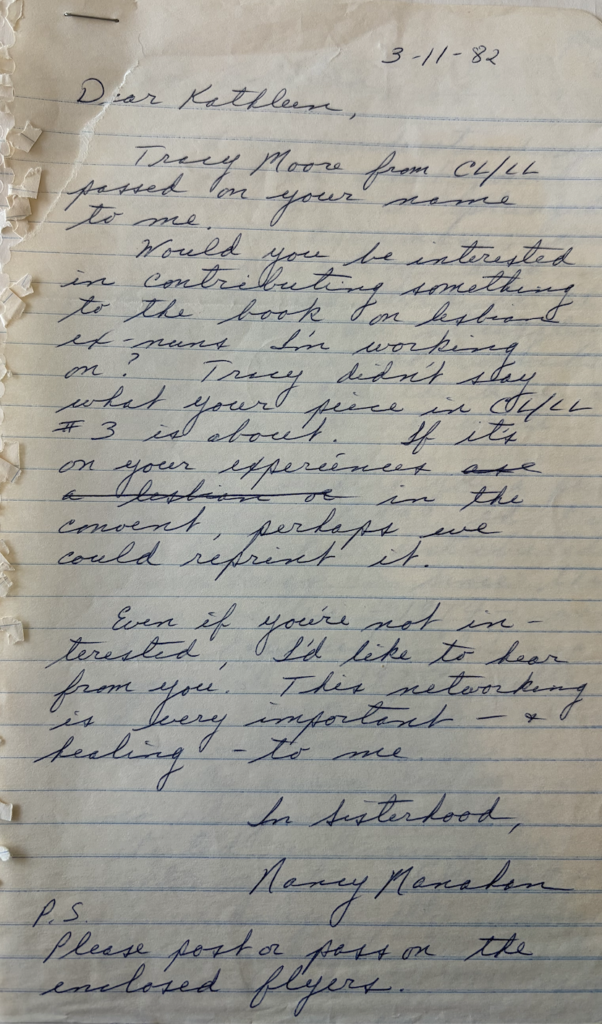 3-11-82
Dear Kathleen,
Tracy Moore from CL/LL
passed on your name
to me.
Would you be interested
in contributing something
to the book on lesbian
ex-nuns I'm working
on? Tracy didn't say
what your piece in CL/LL
#3 is about. If it's
on your experiences
a lesbian or in the
convent, perhaps we
could reprint it.
Even if you're not in-
terested, I'd like to hear
from you. This networking
is very important – &
healing – to me.
In Sisterhood,
Nancy Manahan
P.S.
Please post or pass on the
enclosed flyers.